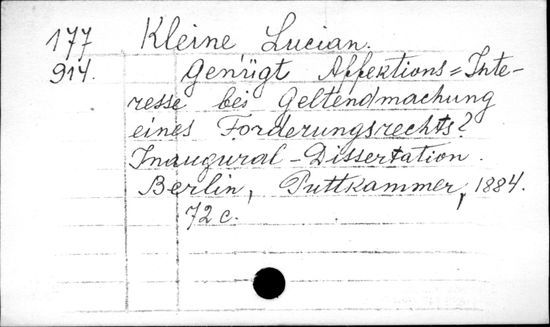 177 Kleine, Lucian.
914. Genügt Affektions=Inte-
resse bei Geltendmachung
eines Forderungsrechts?
Inaugural-Dissertation.
Berlin, Puttkammer, 1884.
72 c.